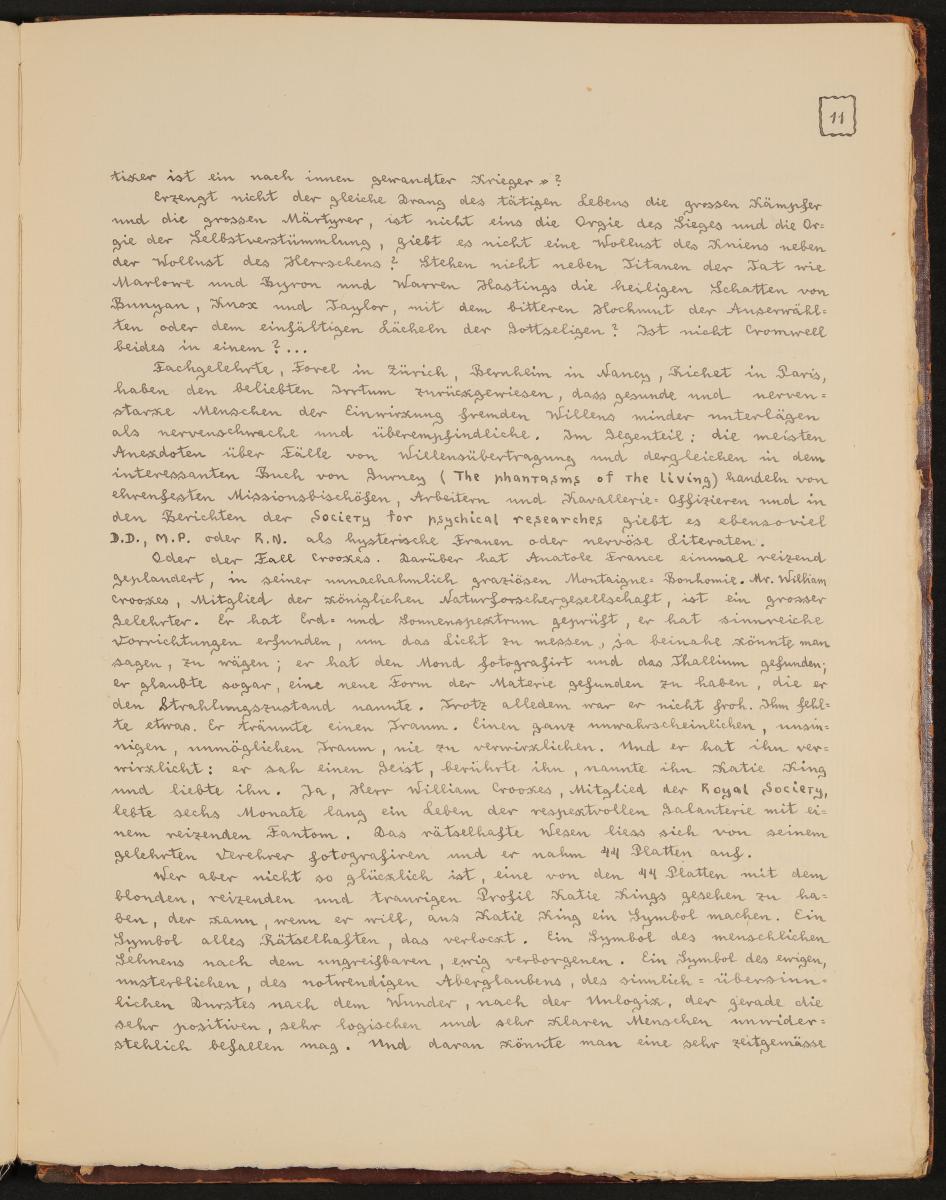 11
tiker ist ein nach innen gewandter Krieger »?
Erzeugt nicht der gleiche Drang des tätigen Lebens die grossen Kämpfer
und die grossen Märtyrer, ist nicht eins die Orgie des Sieges und die Or=
gie der Selbstverstümmlung, giebt es nicht eine Wollust des Kniens neben
der Wollust des Herrschens? Stehen nicht neben Titanen der Tat wie
Marlowe und Byron und Warren Hastings die heiligen Schatten von
Bunyan, Knox und Taylor, mit dem bitteren Hochmut der Auserwähl=
ten oder dem einfältigen Lächeln der Gottseligen? Ist nicht Cromwell
beides in einem?...
Fachgelehrte, Forel in Zürich, Bernheim in Nancy, Richet in Paris,
haben den beliebten Irrtum zurückgewiesen, dass gesunde und nerven=
starke Menschen der Einwirkung fremden Willens minder unterlägen
als nervenschwache und überempfindliche. Im Gegenteil: die meisten
Anekdoten über Fälle von Willensübertragung und dergleichen in dem
interessanten Buch von Gurney (The phantasms of the living) handeln von
ehrenfesten Missionsbischöfen, Arbeitern und Kavallerie=Offizieren und in
den Berichten der Society for psychical researches giebt es ebensoviel
D.D., M.P. oder R.N. als hysterische Frauen oder nervöse Literaten.
Oder der Fall Crookes. Darüber hat Anatole France einmal reizend
geplaudert, in seiner unnachahmlich graziösen Montaigne=Bonhomie. Mr. William
Crookes, Mitglied der königlichen Naturforschergesellschaft, ist ein grosser
Gelehrter. Er hat Erd= und Sonnenspektrum geprüft, er hat sinnreiche
Vorrichtungen erfunden, um das Licht zu messen, ja beinahe könnte man
sagen, zu wägen; er hat den Mond fotografirt und das Thallium gefunden;
er glaubte sogar, eine neue Form der Materie gefunden zu haben, die er
den Strahlungszustand nannte. Trotz alledem war er nicht froh. Ihm fehl=
te etwas. Er träumte einen Traum. Einen ganz unwahrscheinlichen, unsin=
nigen, unmöglichen Traum, nie zu verwirklichen. Und er hat ihn ver=
wirklicht: er sah einen Geist, berührte ihn, nannte ihn Katie King
und liebte ihn. Ja, Herr William Crookes, Mitglied der Royal Society,
lebte sechs Monate lang ein Leben der respektvollen Galanterie mit ei=
nem reizenden Fantom. Das rätselhafte Wesen liess sich von seinem
gelehrten Verehrer fotografiren und er nahm 44 Platten auf.
Wer aber nicht so glücklich ist, eine von den 44 Platten mit dem
blonden, reizenden und traurigen Profil Katie Kings gesehen zu ha=
ben, der kann, wenn er will, aus Katie King ein Symbol machen. Ein
Symbol alles Rätselhaften, das verlockt. Ein Symbol des menschlichen
Sehnens nach dem ungreifbaren, ewig verborgenen. Ein Symbol des ewigen,
unsterblichen, des notwendigen Aberglaubens, des sinnlich=übersinn=
lichen Durstes nach dem Wunder, nach der Unlogik, der gerade die
sehr positiven, sehr logischen und sehr klaren Menschen unwider=
stehlich befallen mag. Und daran könnte man eine sehr zeitgemässe